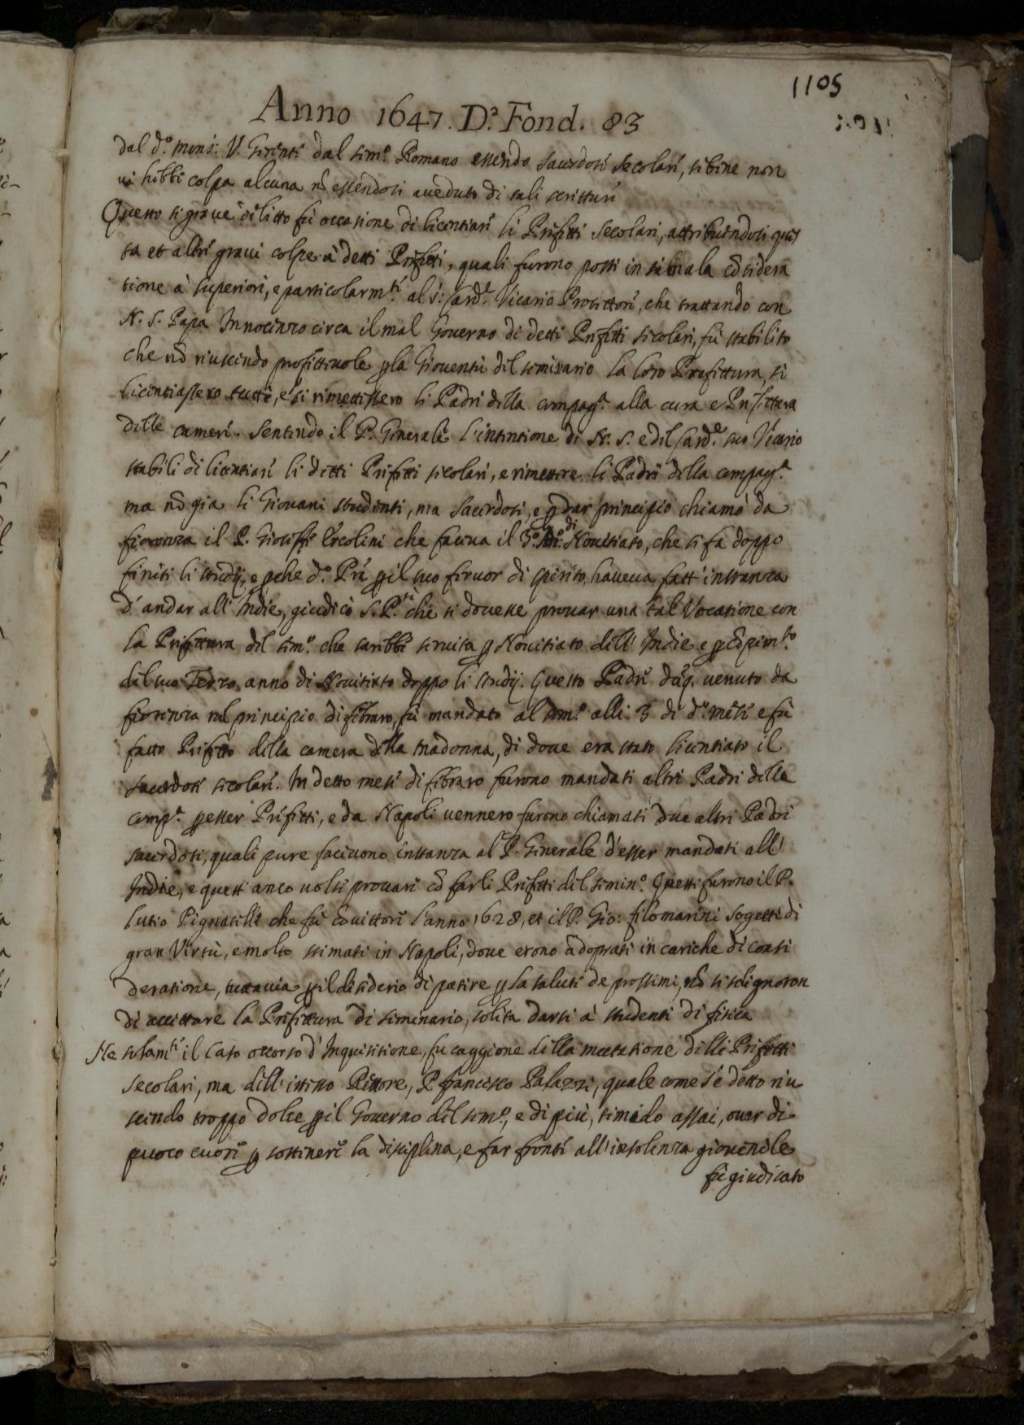 1105
Anno 1647. Da Fond. 83
dal do mons: V. Gerenti dal semo Romano essendo sacerdoti secolari, se bene non
vi hebbe colpa alcuna nõ essendosi aveduto di tali scritture
Questo sì grave delitto fù occasione di licentiare li Prefetti secolari, attribuendosi ques
ta et altre gravi colpe à detti Prefetti, quali furono posti in sì mala cõsidera
tione à superiori, e particolarmte al s: Carde Vicario Protettore, che trattando con
N. S. Papa Innocenzo circa il mal Governo di detti Prefetti secolari, fù stabilito
che nõ riuscendo profittevole p la Gioventù del seminario la loro Prefettura, si
licentiassero tutti, e si rimettessero li Padri della compaga alla cura e Prefettura
delle camere. Sentendo il P. Generale l'intentione di N. S. e del Carde suo Vicario
stabilì di licentiare li detti Prefetti secolari, e rimettere li Padri della compaga
ma nõ già li Giovani studenti, ma Sacerdoti, e p dar principio chiamò da
fiorenza il P. Gioseffe Ercolini che faceva il 3o Ano di Novitiato, che si fa doppo
finiti li studij, e pche do Pre p il suo fervor di spirito haveva fatt'instanza
d'andar all'Indie, giudicò S. P.tà che si dovesse provar una tal Vocatione con
la Prefettura del semo che sarebbe servita p Novitiato dell'Indie e p cõpimto
del suo Terzo anno di Novitiato doppo li studij. Questo Padre dũq. venuto da
fiorenza nel principio di febraro, fù mandato al semo alli 3 di do mese e fù
fatto Prefetto della camera della madonna, di dove era stato licentiato il
sacerdote secolare. In detto mese di febraro furono mandati altri Padri della
compa p esser Prefetti, e da Napoli vennero furono chiamati due altri Padri
sacerdoti, quali pure facevono instanza al P. Generale d'esser mandati all'
Indie, e questi anco volse provare cõ farli Prefetti del semino Questi furono il P.
Lutio Pignatelli che fù Covittore l'anno 1628, et il P. Gio: filomarini sogetti di
gran Virtù, e molto stimati in Napoli, dove erono adoprati in cariche di consi
deratione, tuttavia p il desiderio di patire p la salute de prossimi, nõ si sdegnoron
di accettare la Prefettura di seminario, solita darsi à studenti di fisica
Ne solamte il caso occorso d'Inquisitione, fu caggione della mutatione delli Prefetti
secolari, ma dell'istesso Rettore, P. francesco Palazzi, quale come s'è detto riu
scendo troppo dolce p il Governo del semo, e di più, timido assai, over di
puoco cuore p sostinere la disciplina, e far fronte all'insolenza giovenile
fù giudicato